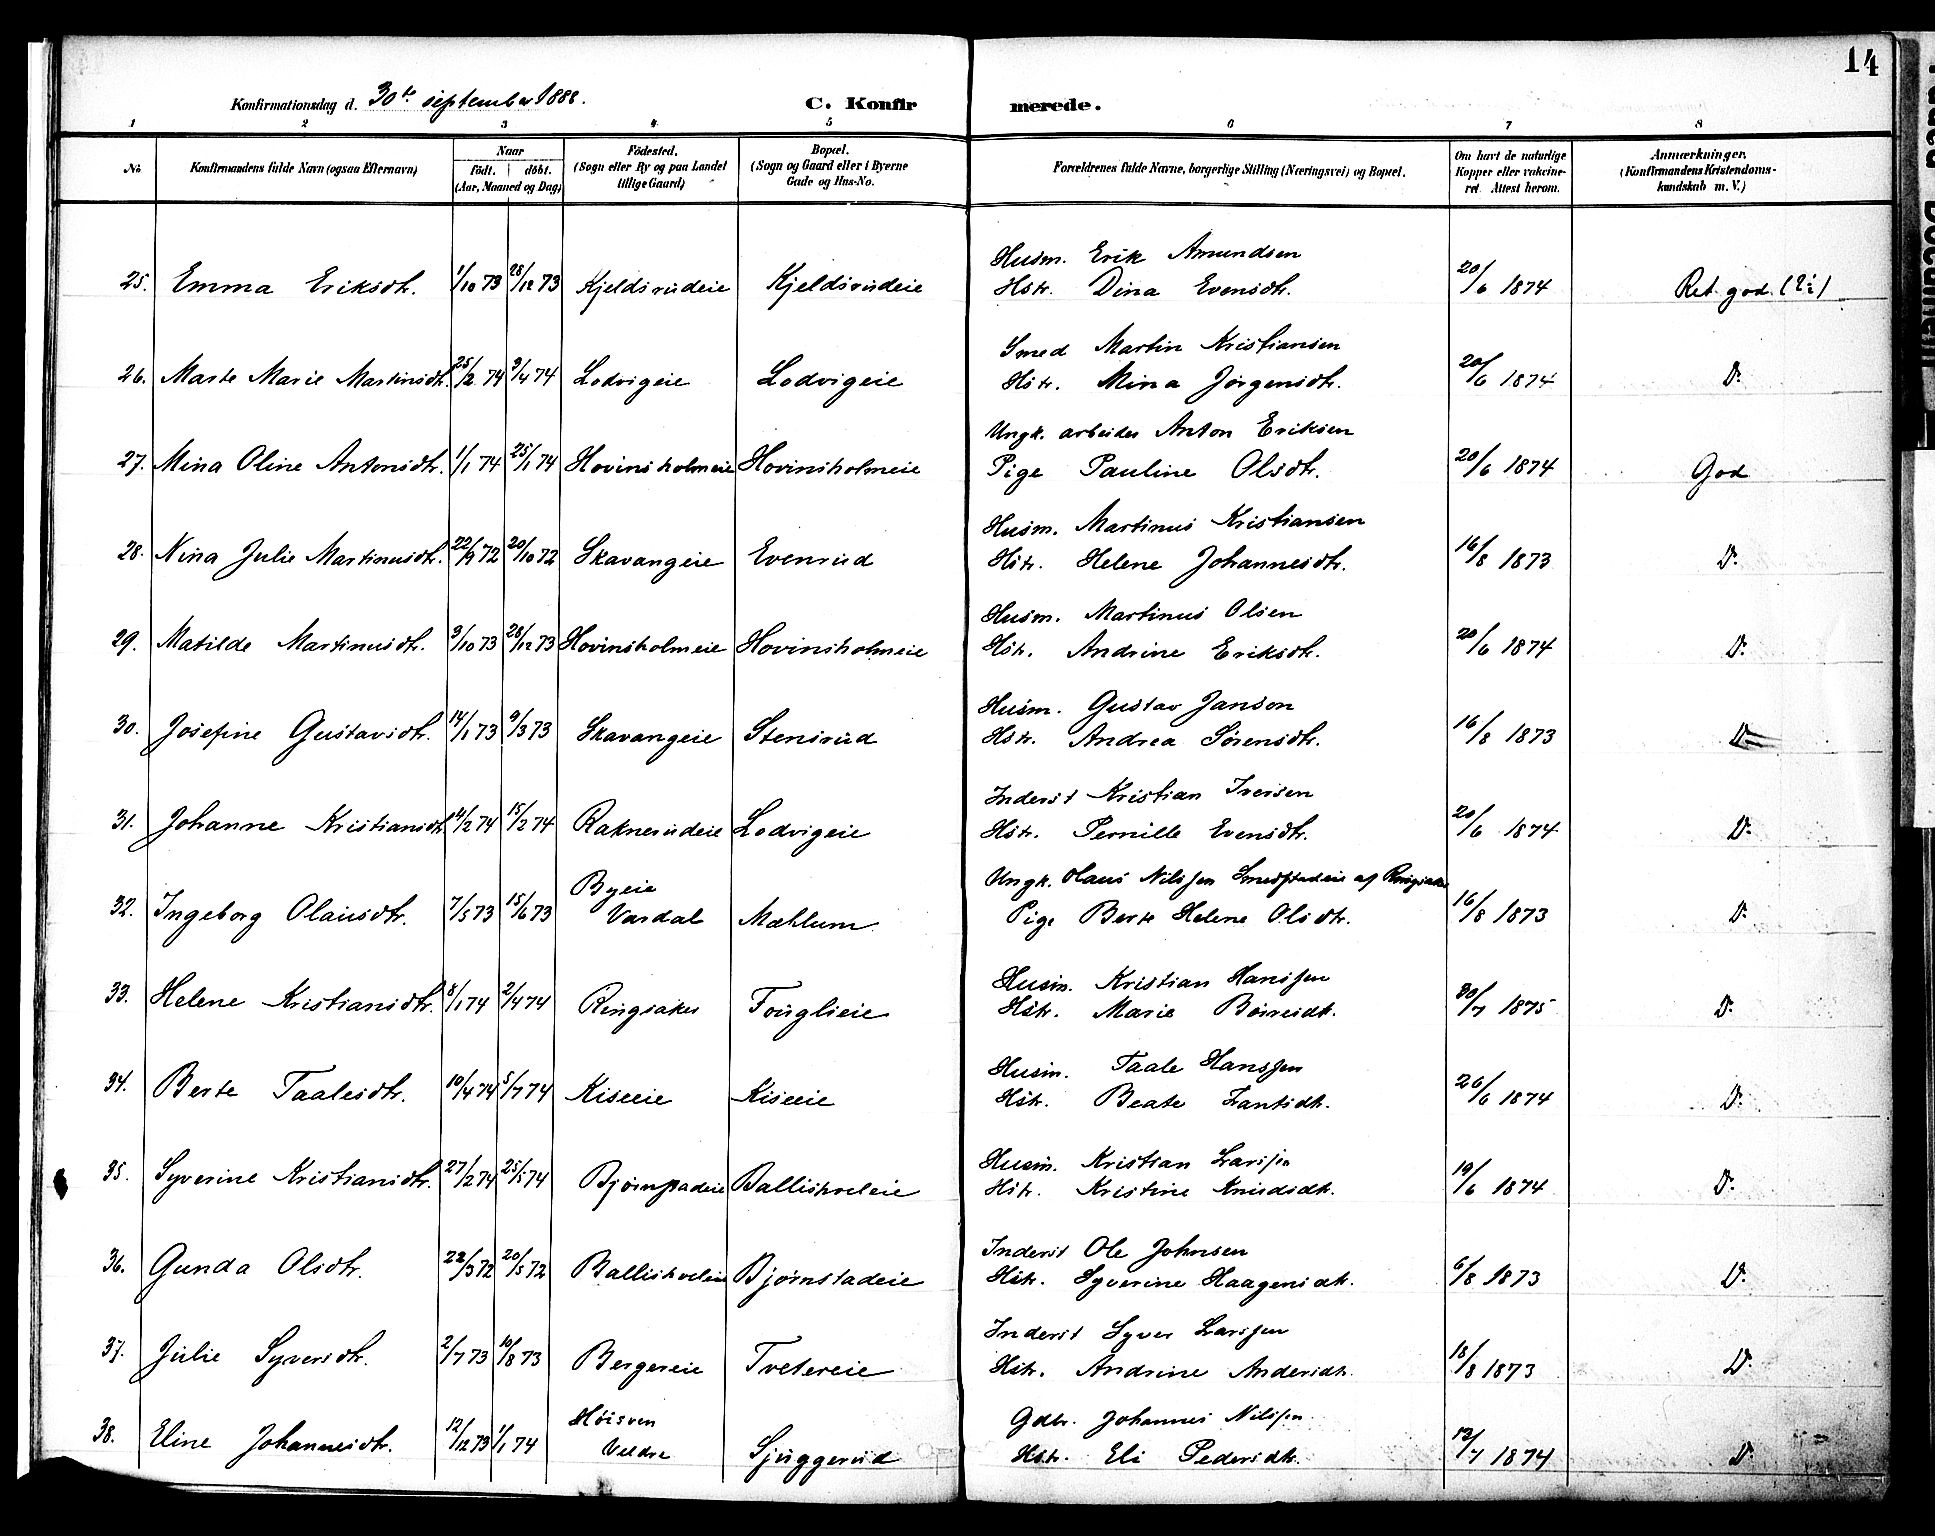 14
Konfirmationsdag d. 30te september 1888. C. Konfirmerede.
1 2 3 4 5 6 7 8
No. Konfirmandens fulde Navn (ogsaa Efternavn) Naar født. døbt. (Aar, Maaned og Dag) Fødested. (Sogn eller By og paa Landet tillige Gaard) Bopæl. (Sogn og Gaard eller i Byerne Gade og Hus-No. Forældrenes fulde Navne, borgerlige Stilling (Næringsvei) og Bopæl. Om havt de naturlige Kopper eller vakcineret. Attest herom. Anmærkninger. (Konfirmandens Kristendomskundskab m. V.)
Husm. Erik Amundsen
25. Emma Eriksdtr. 1/10 73 28/12 73 Kjeldsrudeie Kjeldsrudeie Hstr. Dina Evensdtr. 20/6 1874 Ret god.
Smed Martin Kristiansen
26. Marte Marie Martinsdtr. 25/2 74 9/4 74 Lodvigeie Lodvigeie Hstr. Mina Jørgensdtr. 20/6 1874 Do
Ungk. arbeider Anton Eriksen
27. Mina Oline Antonsdtr. 1/1 74 25/1 74 Hovinsholmeie Hovinsholmeie Pige Pauline Olsdtr. 20/6 1874 God
Husm. Martinus Kristiansen
28. Nina Julie Martinusdtr. 22/9 72 20/10 72 Skavangeie Evenrud Hstr. Helene Johannesdtr. 16/8 1873 Do
Husm. Martinus Olsen
29. Matilde Martinusdtr. 9/10 73 28/12 73 Hovinsholmeie Hovinsholmeie Hstr. Andrine Eriksdtr. 20/6 1874 Do
Husm. Gustav Janson
30. Josefine Gustavsdtr. 14/1 73 9/3 73 Skavangeie Stensrud Hstr. Andrea Sørensdtr. 16/8 1873 Do
Inderst Kristian Iversen
31. Johanne Kristiansdtr 4/2 74 15/2 74 Raknerudeie Lodvigeie Hstr. Pernille Evensdtr. 20/6 1874 Do
Ungk. Olaus Nilssen Smedstadeie af Ringsaker
32. Ingeborg Olausdtr. 7/5 73 15/6 73 Byeie Vardal Mæhlum Pige Berte Helene Olsdtr. 16/8 1873 Do
Husm. Kristian Hanssen
33. Helene Kristiansdtr. 8/1 74 2/4 74 Ringsaker Fouglieie Hstr. Marie Børresdtr. 30/7 1875 Do
Husm. Taale Hanssen
34. Berte Taalesdtr. 10/4 74 5/7 74 Kiseeie Kiseeie Hstr. Beate Lantsdtr. 26/6 1874 Do
Husm. Kristian Larssen
35. Syverine Kristiansdtr. 27/2 74 25/5 74 Bjørnstadeie Ballishveleie Hstr. Kristine Knudsdtr. 19/6 1874 Do
Inderst Ole Johnsen
36. Gunda Olsdtr. 22/3 72 20/5 72 Ballishveleie Bjørnstadeie Hstr. Syverine Haagensdtr. 6/8 1873 Do
Inderst Syver Larssen
37. Julie Syversdtr. 2/7 73 10/8 73 Bergereie Tvetereie Hstr. Andrine Andersdtr. 18/8 1873 Do
Gdbr. Johannes Nilssen
38. Eline Johannesdtr. 12/12 73 1/1 74 Høisven Veldre Sjuggerud Hstr. Eli Pedersdtr. 12/7 1874 Do